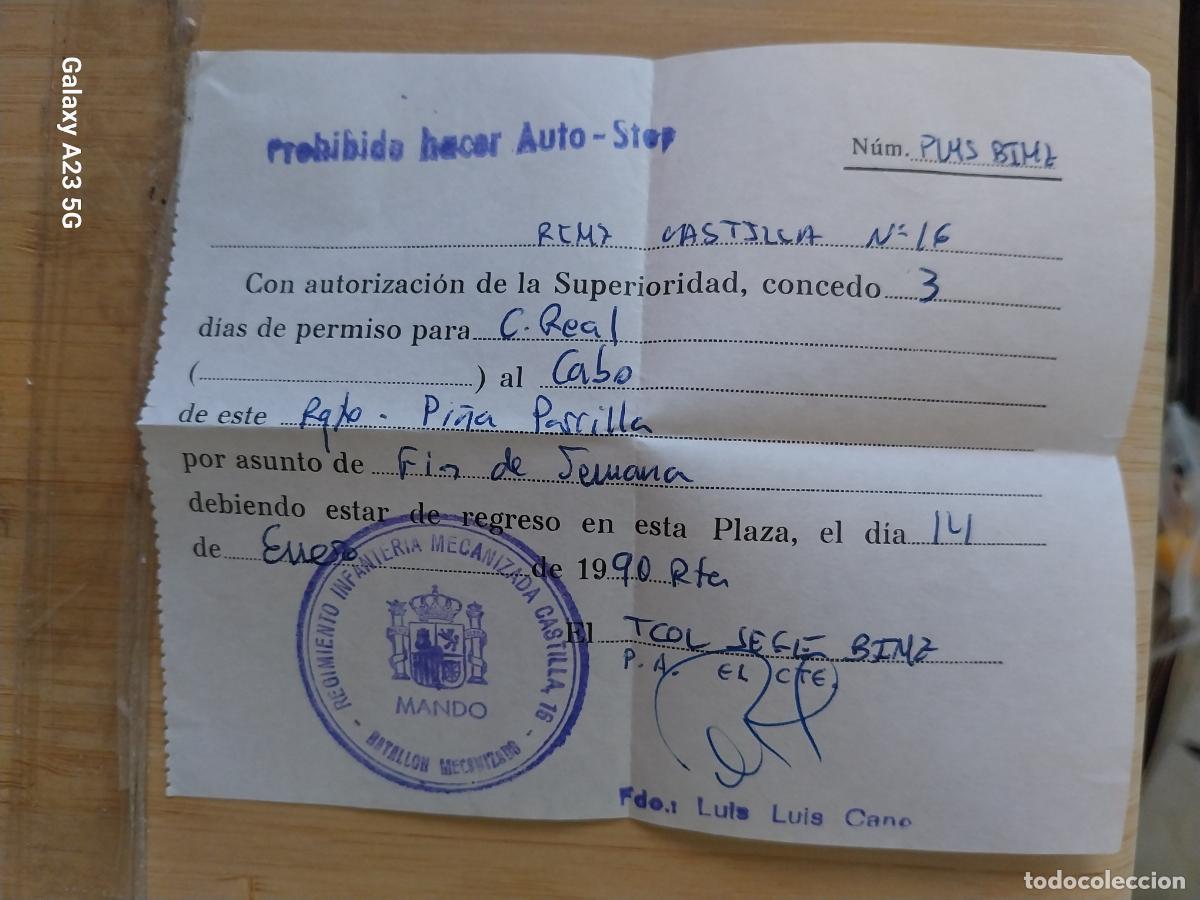 Galaxy A23 5G
Prohibida hacer Auto-Stop
Núm. PLMS BIMZ
RIMZ CASTILLA Nº 16
Con autorización de la Superioridad, concedo 3
días de permiso para C. Real
( ) al Cabo
de este Rgto. Piña Parrilla
por asunto de Fin de Semana
debiendo estar de regreso en esta Plaza, el día 14
de Enero de 1990 Rta
El TCOL JEFE BIMZ
P.A. EL CTE.
REGIMIENTO INFANTERIA MECANIZADA CASTILLA, 16
MANDO
- BATALLON MECANIZADO -
Fdo.: Luis Luis Cano
todocoleccion